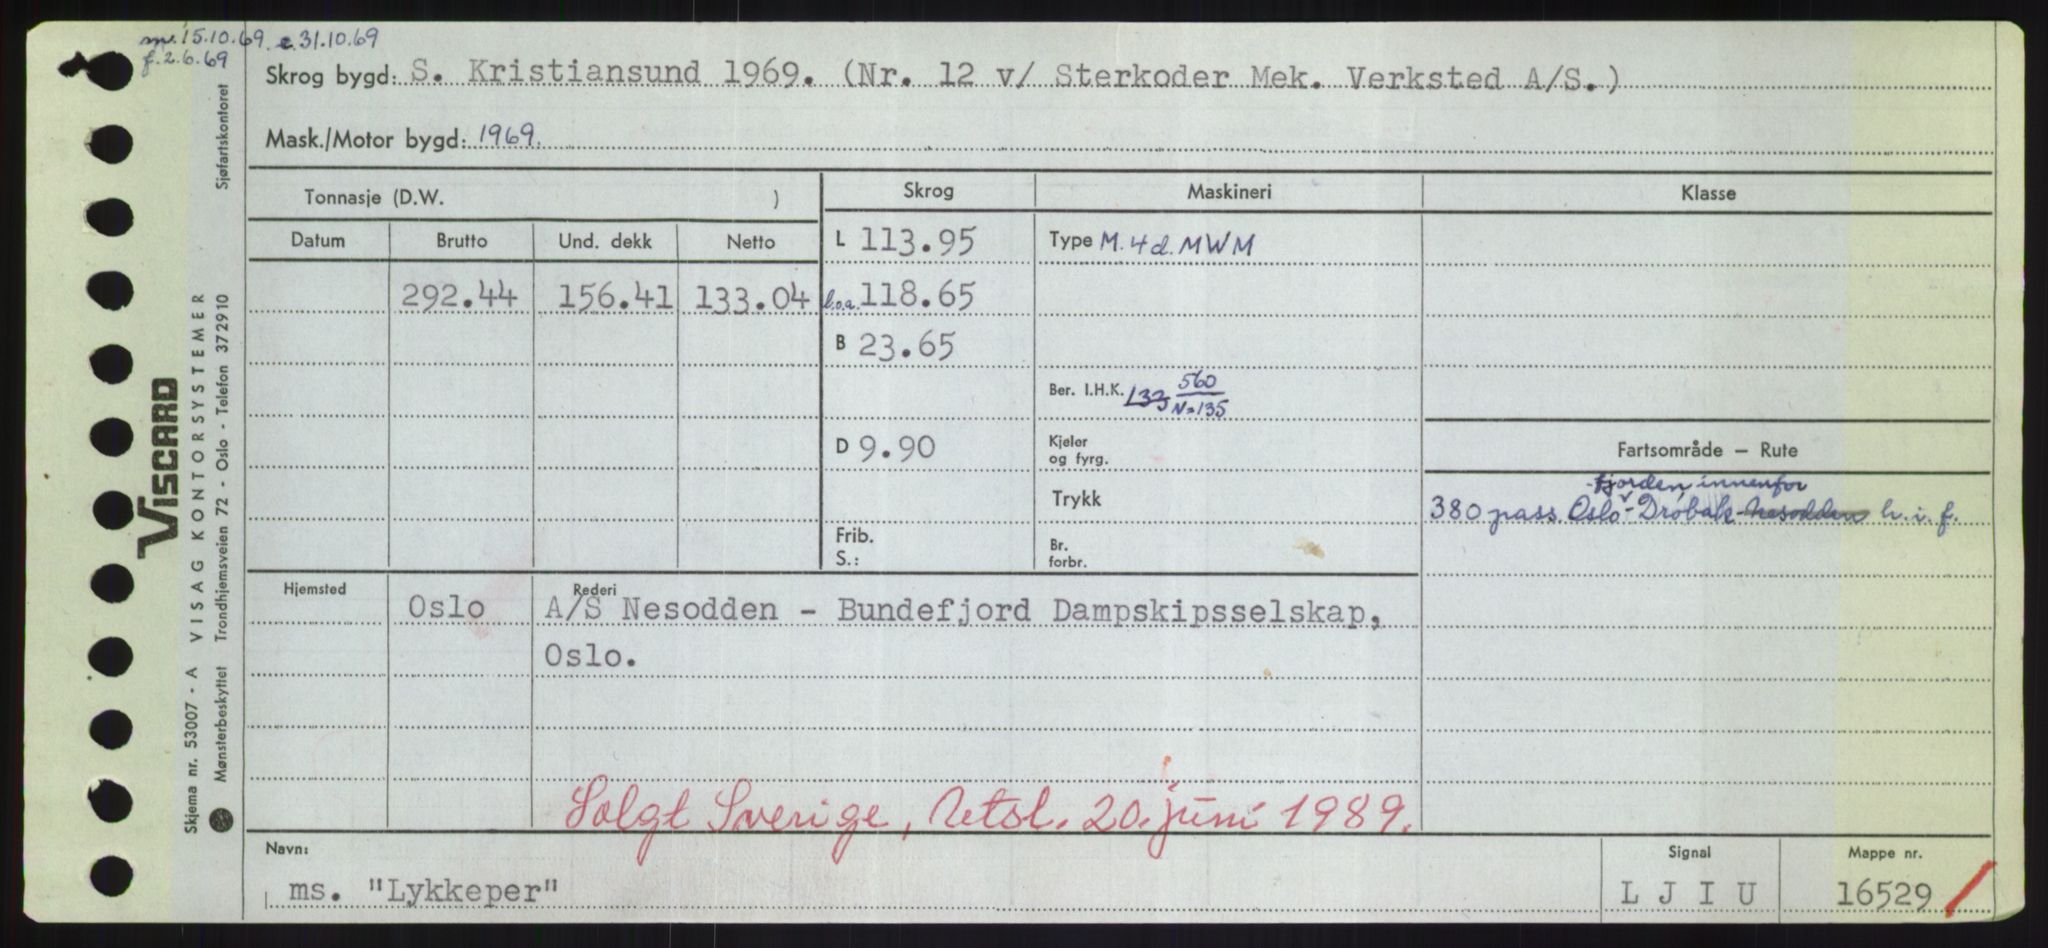 m. 15.10.69. e. 31.10.69
f. 2.6.69
Skrog bygd: S. Kristiansund 1969. (Nr. 12 v/ Sterkoder Mek. Verksted A/S.)
Mask./Motor bygd: 1969.
Tonnasje (D.W. )
Skrog Maskineri Klasse
Datum Brutto Und. dekk Netto
L 113.95 Type M. 4 d. MWM
292.44 156.41 133.04 l.o.a. 118.65
B 23.65
Ber. I.H.K. 133 560
N=135
D 9.90 Kjeler
og fyrg.
Fartsområde — Rute
Trykk
-fjorden innenfor
380 pass. Oslo - Drøbak - Nesodden h. i. f.
Frib.
S.:
Br.
forbr.
Hjemsted Rederi
Oslo A/S Nesodden - Bundefjord Dampskipsselskap,
Oslo.
Solgt Sverige, Uetsl. 20. juni 1989.
Navn: Signal Mappe nr.
ms. "Lykkeper" L J I U 16529
VISCARD
Skjema nr. 53007 - A VISAG KONTORSYSTEMER
Mønsterbeskyttet Trondhjemsveien 72 - Oslo - Telefon 372910 Sjøfartskontoret